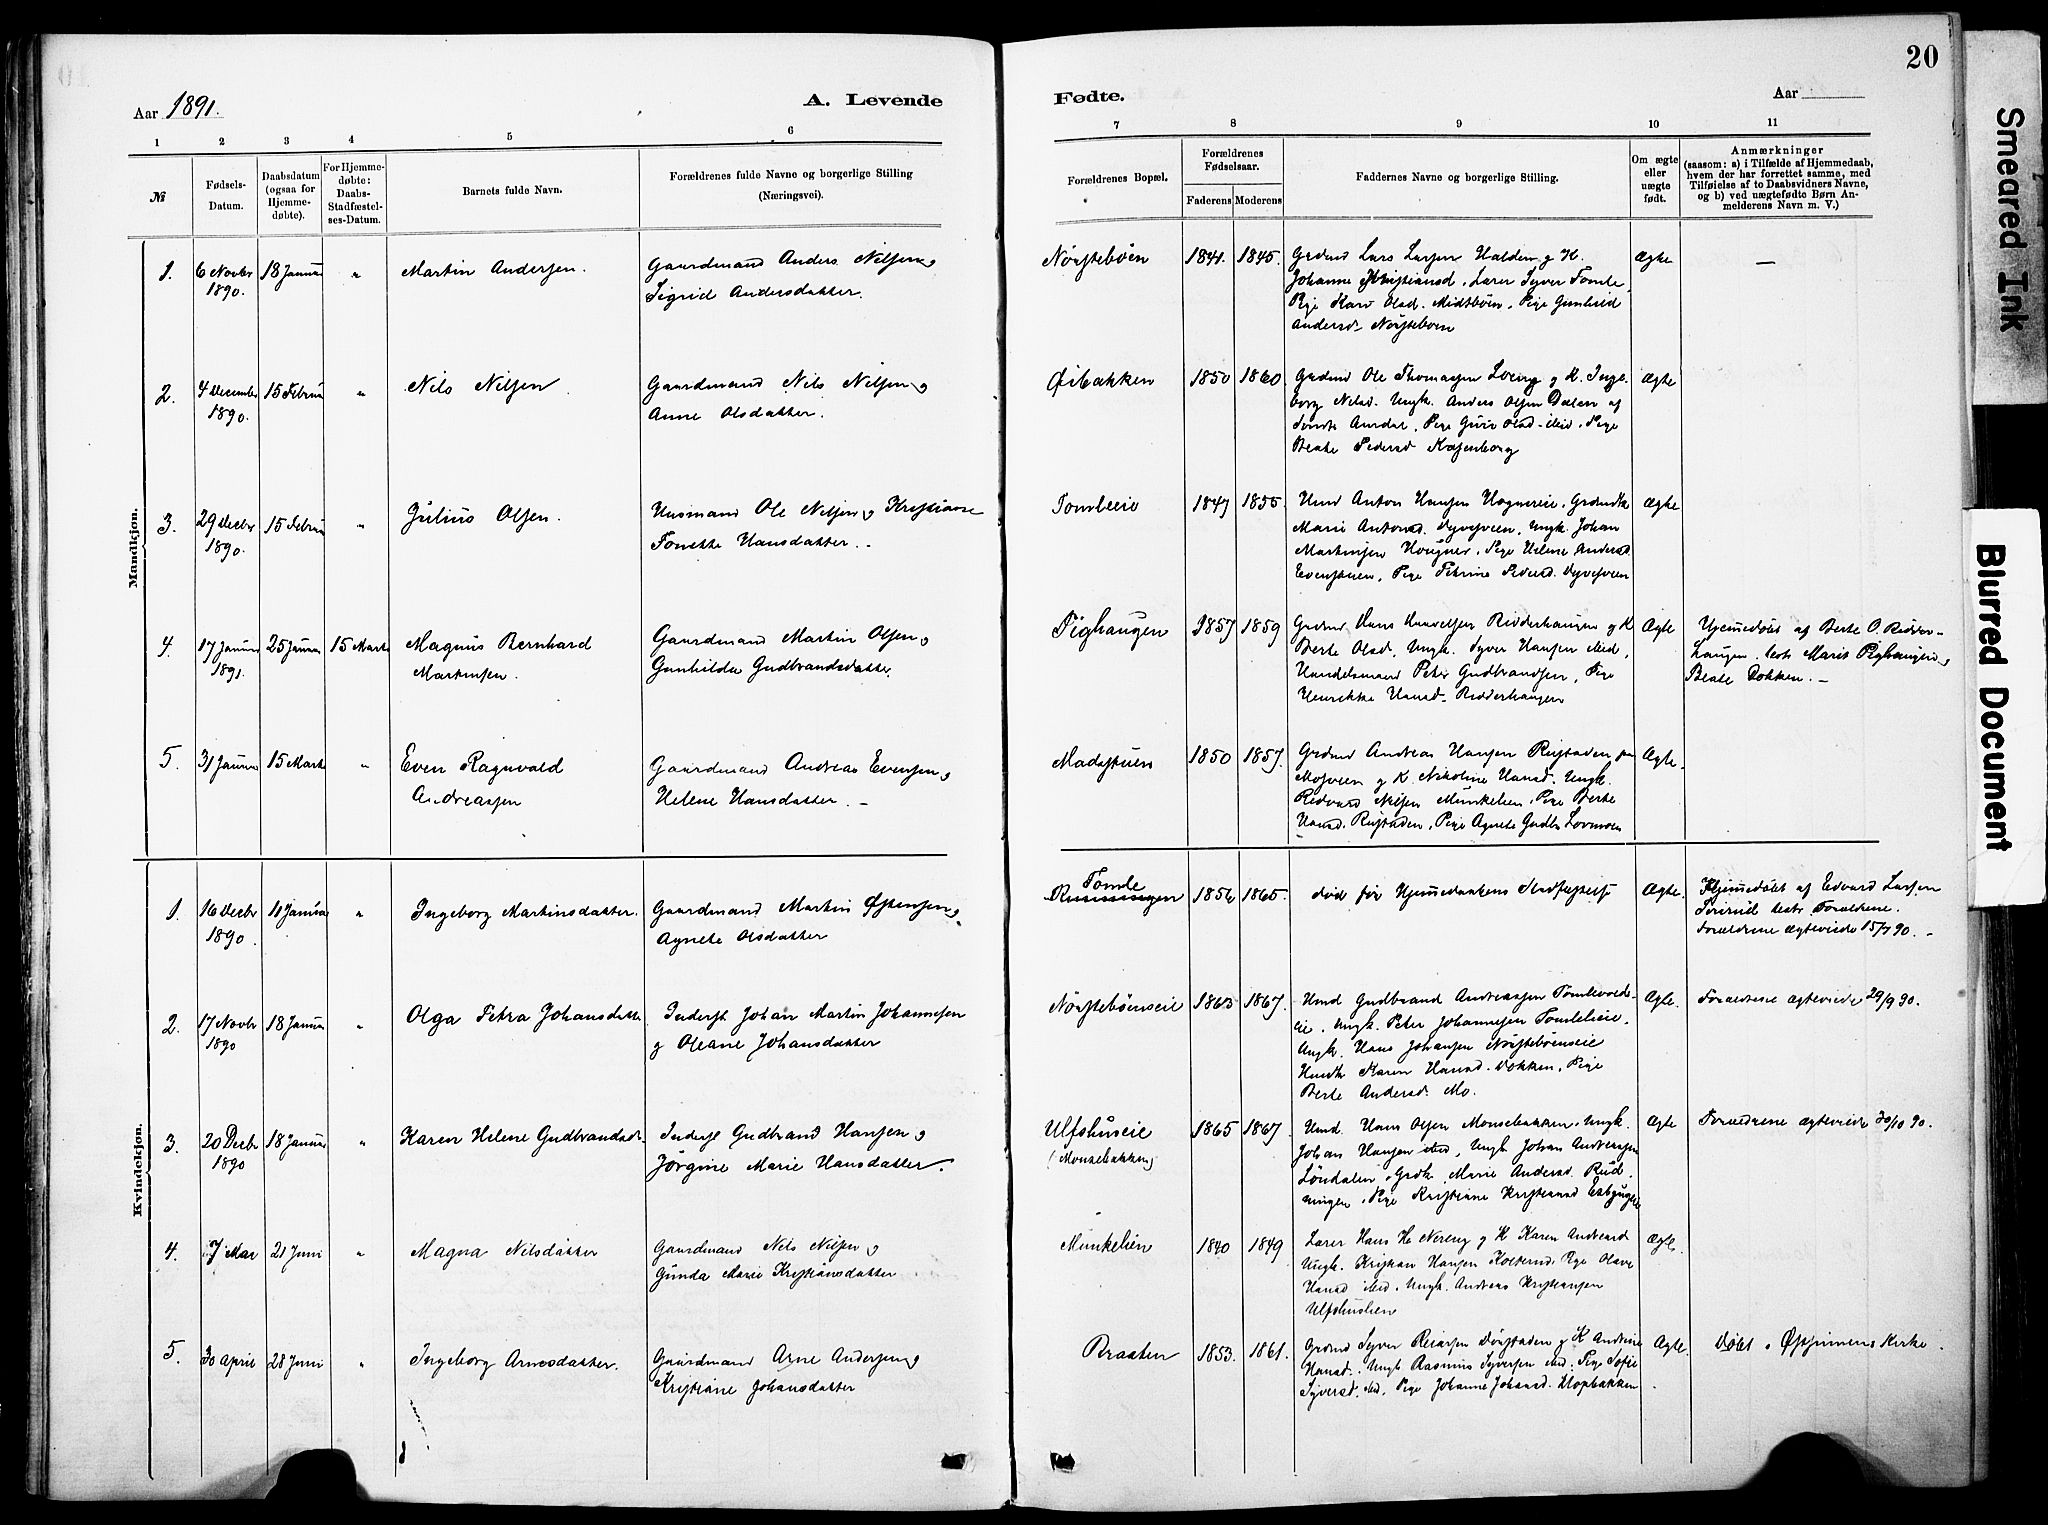 20
Aar 1891.
A. Levende
Fødte.
Aar
1 2 3 4 5 6 7 8 9 10 11
№
Fødsels-Datum.
Daabsdatum (ogsaa for Hjemme-døbte).
For Hjemme-døbte: Daabs-Stadfæstel-ses-Datum.
Barnets fulde Navn.
Forældrenes fulde Navne og borgerlige Stilling (Næringsvei).
Forældrenes Bopæl.
Forældrenes Fødselsaar.
Faderens Moderens
Faddernes Navne og borgerlige Stilling.
Om ægte eller uægte født.
Anmærkninger
(saasom: a) i Tilfælde af Hjemmedaab,
hvem der har forrettet samme, med
Tilføielse af to Daabsvidners Navne,
og b) ved uægtefødte Børn An-
melderens Navn m. V.)
Mandkjøn.
1. 6 Novbr 1890. 18 Januar " Martin Andersen.
Gaardmand Anders Nilsen og
Sigrid Andersdatter.
Nørstebøen 1841. 1845.
Grdmd Lars Larsen Halden og K.
Johanne Kristiansd. Lærer Syver Tomle,
Pige Kari Olsd. Midtbøen, Pige Gunhild
Andersd. Nørstebøen
Ægte —
2. 4 December 1890. 15 Februar " Nils Nilsen.
Gaardmand Nils Nilsen og
Anne Olsdatter.
Øibakken 1850 1860.
Grdmd Ole Thomasen Loeng og K. Inge-
borg Nilsd. Ungk. Anders Olsen Dælen af
Søndre Aurdal, Pige Guri Olsd. ibid. Pige
Beate Pedersd
Ægte
3. 29 Decbr 1890. 15 Februar " Julius Olsen.
Husmand Ole Nilsen og Kristiane
Tonette Hansdatter.
Tomleeie 1847 1855.
Hmd Anton Hansen Hougnereie, Grdmdk
Marie Antonsd. Ungk. Johan
Martinsen Hougner, Pige Helene Andersd.
Evenstuen, Pige Petrine Pedersd.
Ægte
4. 17 Januar 1891. 25 Januar 15 Marts Magnus Bernhard
Martinsen.
Gaardmand Martin Olsen og
Gunhilda Gudbrandsdatter.
Pighaugen 1857 1859
Grdmd Hans Haavelsen Ridderhaugen og K
Berte Olsd, Ungk. Syver Hansen ibid,
Handelsmand Peter Gudbrandsen, Pige
Henrikke Hansd. Ridderhaugen
Ægte
Hjemmedøbt af Berte O. Ridder-
haugen, testr Marit Pighaugen og
Beate Dokken. —
5. 31 Januar 15 Marts " Even Ragnvald
Andreassen
Gaardmand Andreas Evensen og
Helene Hansdatter. —
Madsstuen 1850 1857.
Grdmd Andreas Hansen Rustaden
og K Nikoline Hansd. Ungk.
Redvard Nilsen Munkelien, Pige Berte
Hansd. Rustaden, Pige Agnete Gudbr.
Ægte.
Kvindekjøn.
1. 16 Decbr 1890. 11 Januar " Ingeborg Martinsdatter.
Gaardmand Martin Østensen og
Agnete Olsdatter
Tomle
1856 1865.
død før Hjemmedaabens Stadfæstelse
Ægte.
Hjemmedøbt af Edvard Larsen
testr Forældrene.
Forældrene ægteviede 15/7 90. —
2. 17 Novbr 1890 18 Januar " Olga Petra Johansdatter
Inderst Johan Martin Johannesen
og Oleane Johansdatter
Nørstebøenseie 1863 1867.
Hmd Gudbrand Andreassen Tomlevolds-
eie. Ungk. Peter Johannesen Tomleeie.
Ungk. Hans Johansen Nørstebøenseie
Hmdk Karen Hansd. Dokken, Pige
Berte Andersd. Mo.
Ægte.
Forældrene ægteviede 29/9 90.
3. 20 Decbr 1890 18 Januar " Karen Helene Gudbrandsdr.
Inderst Gudbrand Hansen og
Jørgine Marie Hansdatter.
Ulfshuseie
(Monsebakken)
1865 1867.
Hmd. Hans Olsen Monsebakken, Ungk.
Johan Hansen ibid, Ungk Johan Andreassen
Løndalen, Grdk. Marie Andersd. Rud-
ningen, Pige Kristiane Kristiansd
Ægte
Forældrene ægteviede 30/10 90.
4. 7 Mai 21 Juni " Magna Nilsdatter
Gaardmand Nils Nilsen og
Gunda Marie Kristiansdatter
Munkelien 1840 1849
Lærer Hans H. Nereng og K Karen Andreasd
Ungk. Kristian Hansen Pige Olava
Hansd ibid. Ungk. Andreas Kristiansen
Ulfshuslien
Ægte.
5. 30 April 28 Juni " Ingeborg Arnesdatter.
Gaardmand Arne Andersen og
Kristiane Johansdatter
Braaten 1853. 1861.
Grdmd Syver Reiersen og K Andrine
Hansd. Ungk Rasmus Syversen ibid. Pige Sofie
Syversd. ibid, Pige Johanne Johansd. Klopbakken
Ægte.
Døbt i Kirke.
Smeared Ink
Blurred Document